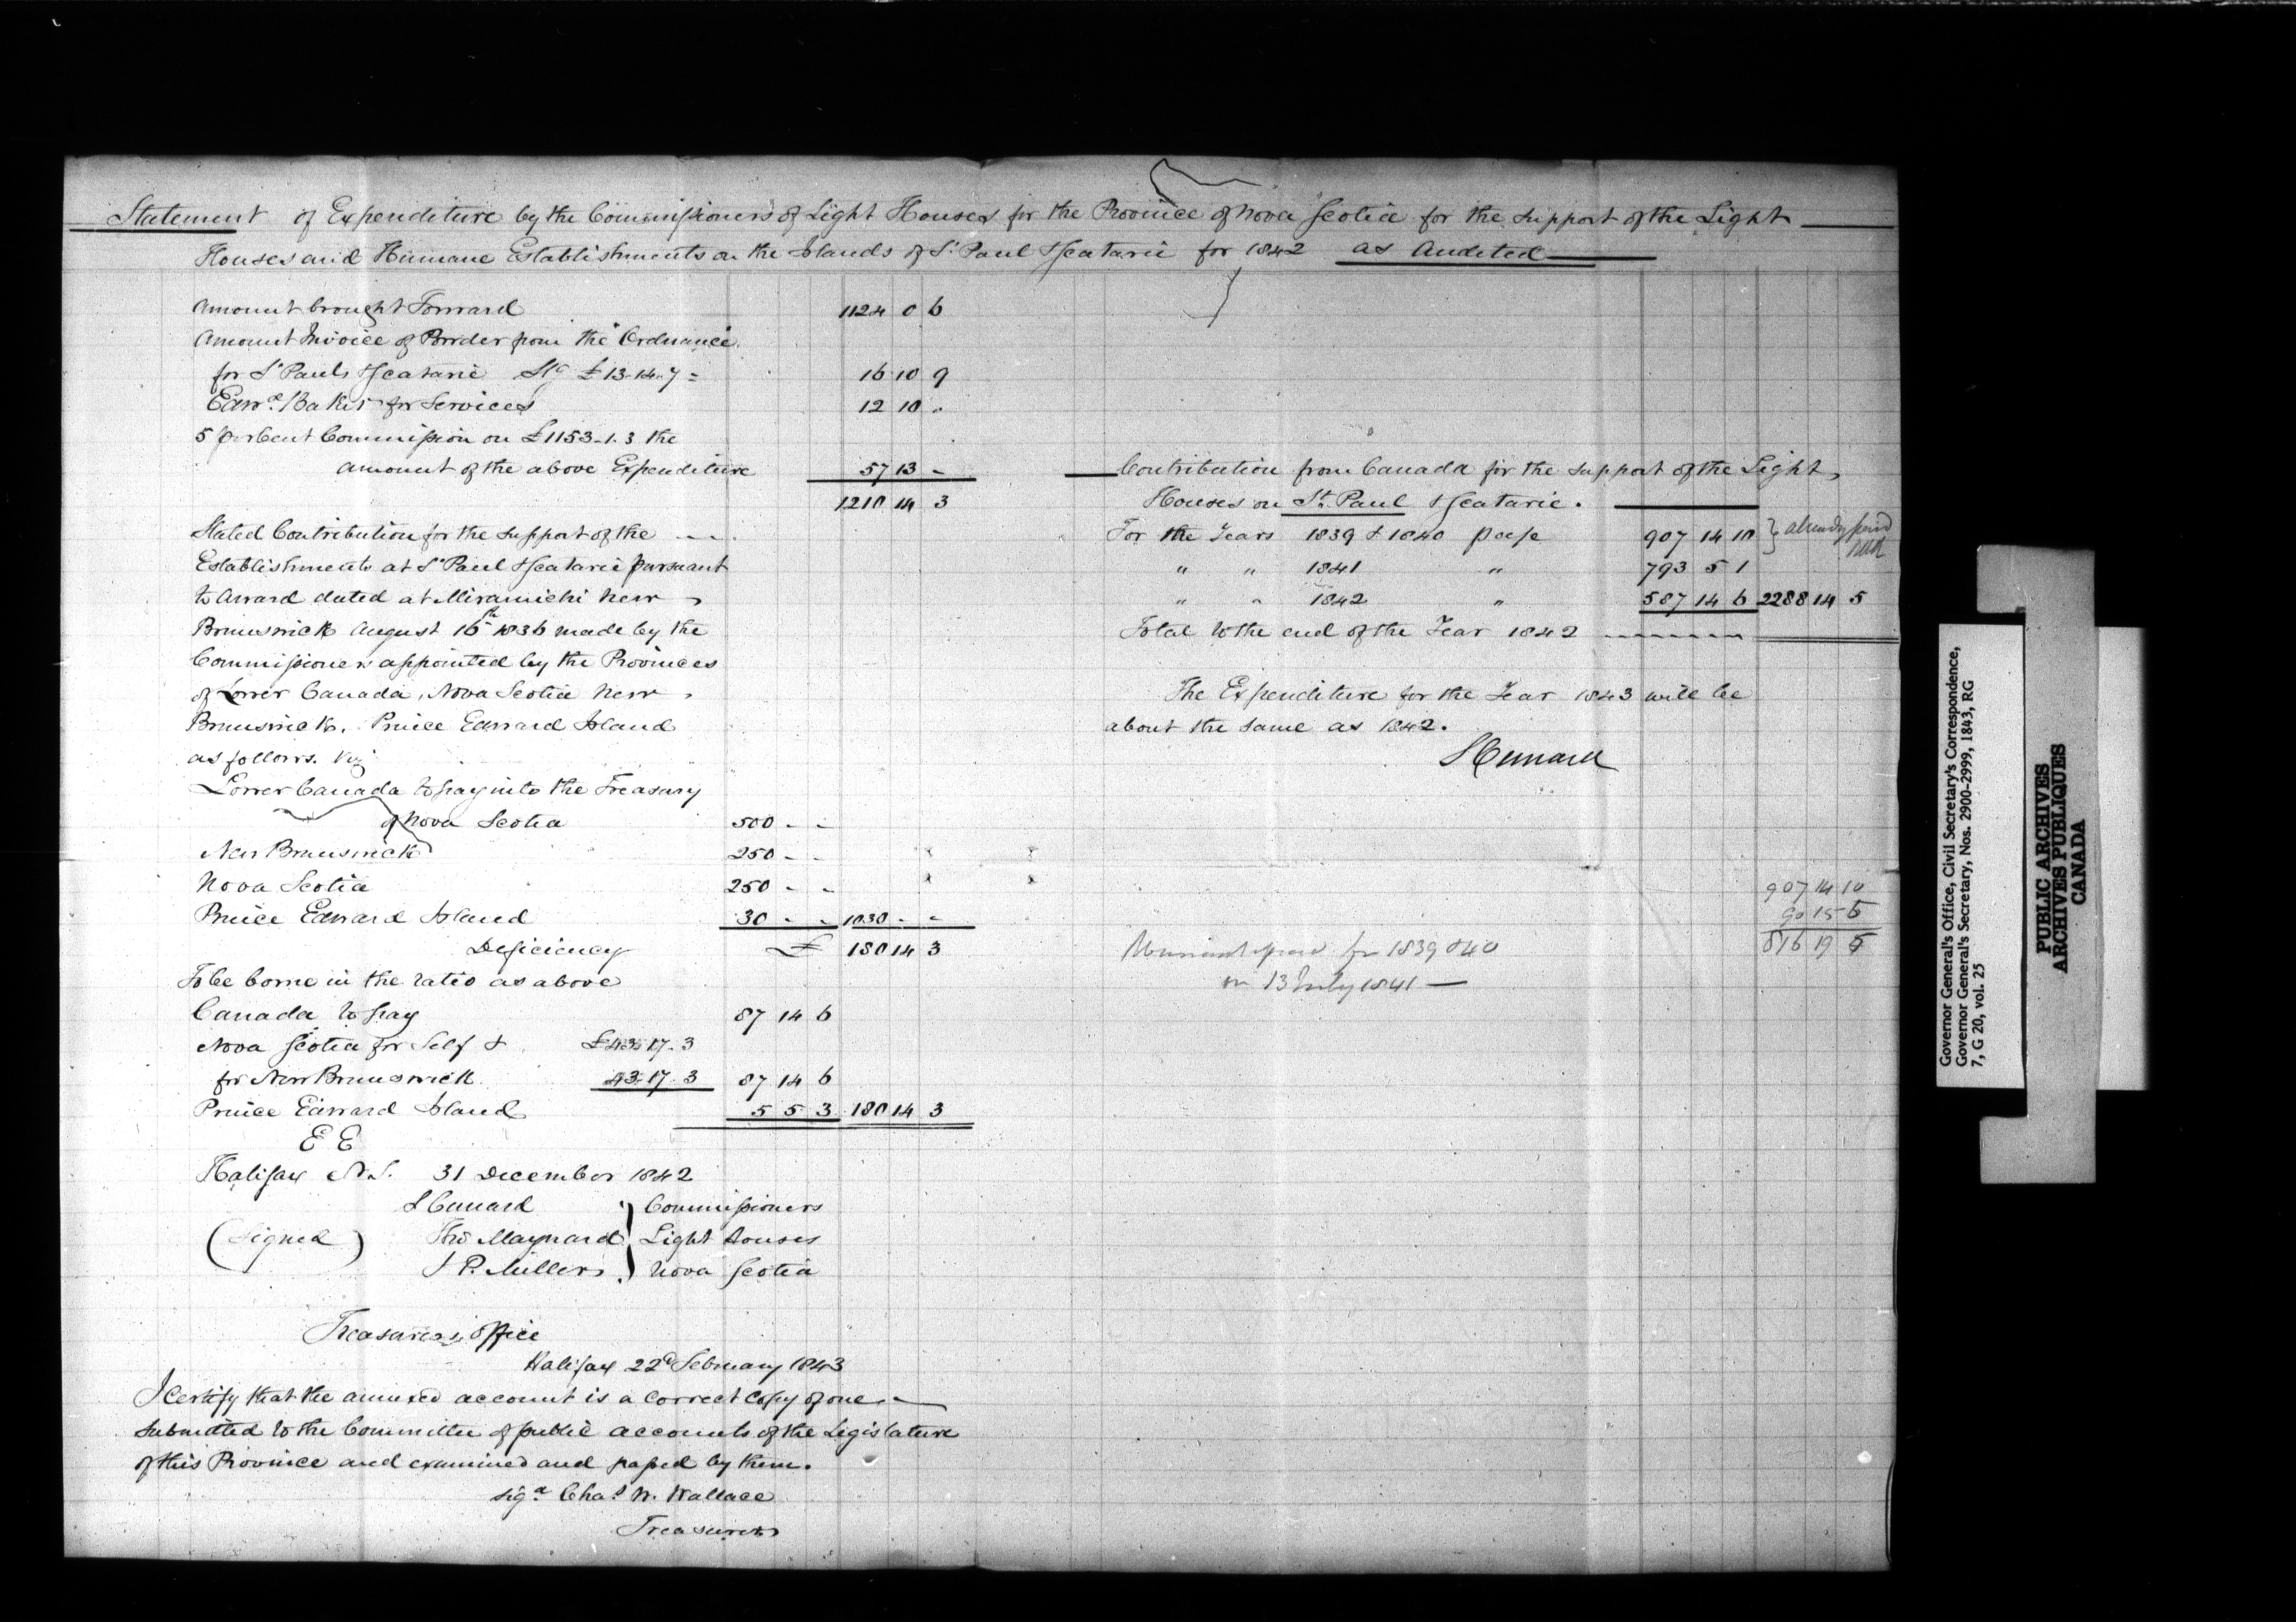 Statement of Expenditure by the Commissioners of Light Houses for the Province of Nova Scotia for the support of the Light
Houses and Humane Establishments on the Islands of St Paul & Scatarie for 1842 as Audited
Amount brought Forward 1124 0 6
Amount Invoice of Powder from the "Ordnance"
for St Pauls & Scatarie Stg £13-14-7 = 16 10 9
Edwd Baker for Services 12 10 -
5 per Cent Commission on £1153-1-3 the
amount of the above Expenditure 57 13 -
1210 14 3
Stated Contribution for the support of the
Establishments at St Paul & Scatarie pursuant
to Award dated at Miramichi New
Brunswick August 16th 1836 made by the
Commissioners appointed by the Provinces
of Lower Canada, Nova Scotia New
Brunswick, Prince Edward Island
as follows. Viz
Lower Canada to pay into the Treasury
of Nova Scotia 500 - -
New Brunswick 250 - -
Nova Scotia 250 - -
Prince Edward Island 30 - - 1030 - -
Deficiency £ 180 14 3
To be borne in the ratio as above
Canada to pay 87 14 6
Nova Scotia for Self & £43-17-3
for New Brunswick 43-17-3 87 14 6
Prince Edward Island 5 5 3 180 14 3
E E
Halifax N.S. 31 December 1842
(Signed)
S Cunard
Thos Maynard
J P. Miller
} Commissioners
Light Houses
Nova Scotia
Treasurers Office
Halifax 22d February 1843
I Certify that the annexed account is a correct Copy of one
submitted to the Committee of public accounts of the Legislature
of this Province and examined and passed by them.
sigd Chas W. Wallace
Treasurer
Contribution from Canada for the support of the Light
Houses on St. Paul & Scatarie.
For the Years 1839 & 1840 907 14 10 } already paid
" " 1841 " 793 5 1
" " 1842 " 587 14 6 2288 14 5
Total to the end of the Year 1842
The Expenditure for the Year 1843 will be
about the same as 1842.
S Cunard
907 14 10
90 15 5
816 19 5
for 1839 & 40
on 13 July 1841
Governor General's Office, Civil Secretary's Correspondence,
Governor General's Secretary, Nos. 2900-2999, 1843, RG
7, G 20, vol. 25
PUBLIC ARCHIVES
ARCHIVES PUBLIQUES
CANADA